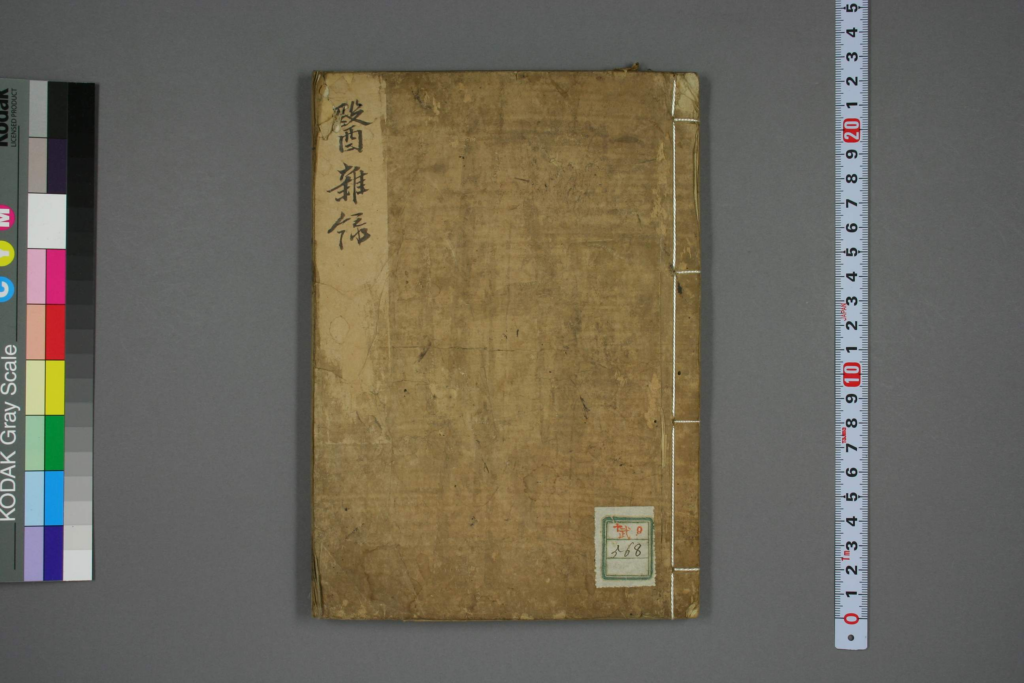 醫雜録
568
KODAK Gray Scale
Kodak
LICENSED PRODUCT
C Y M
5
4
3
2
1
20
9
8
7
6
5
4
3
2
1
10
9
8
7
6
5
4
3
2
1
0
JAPAN
1m